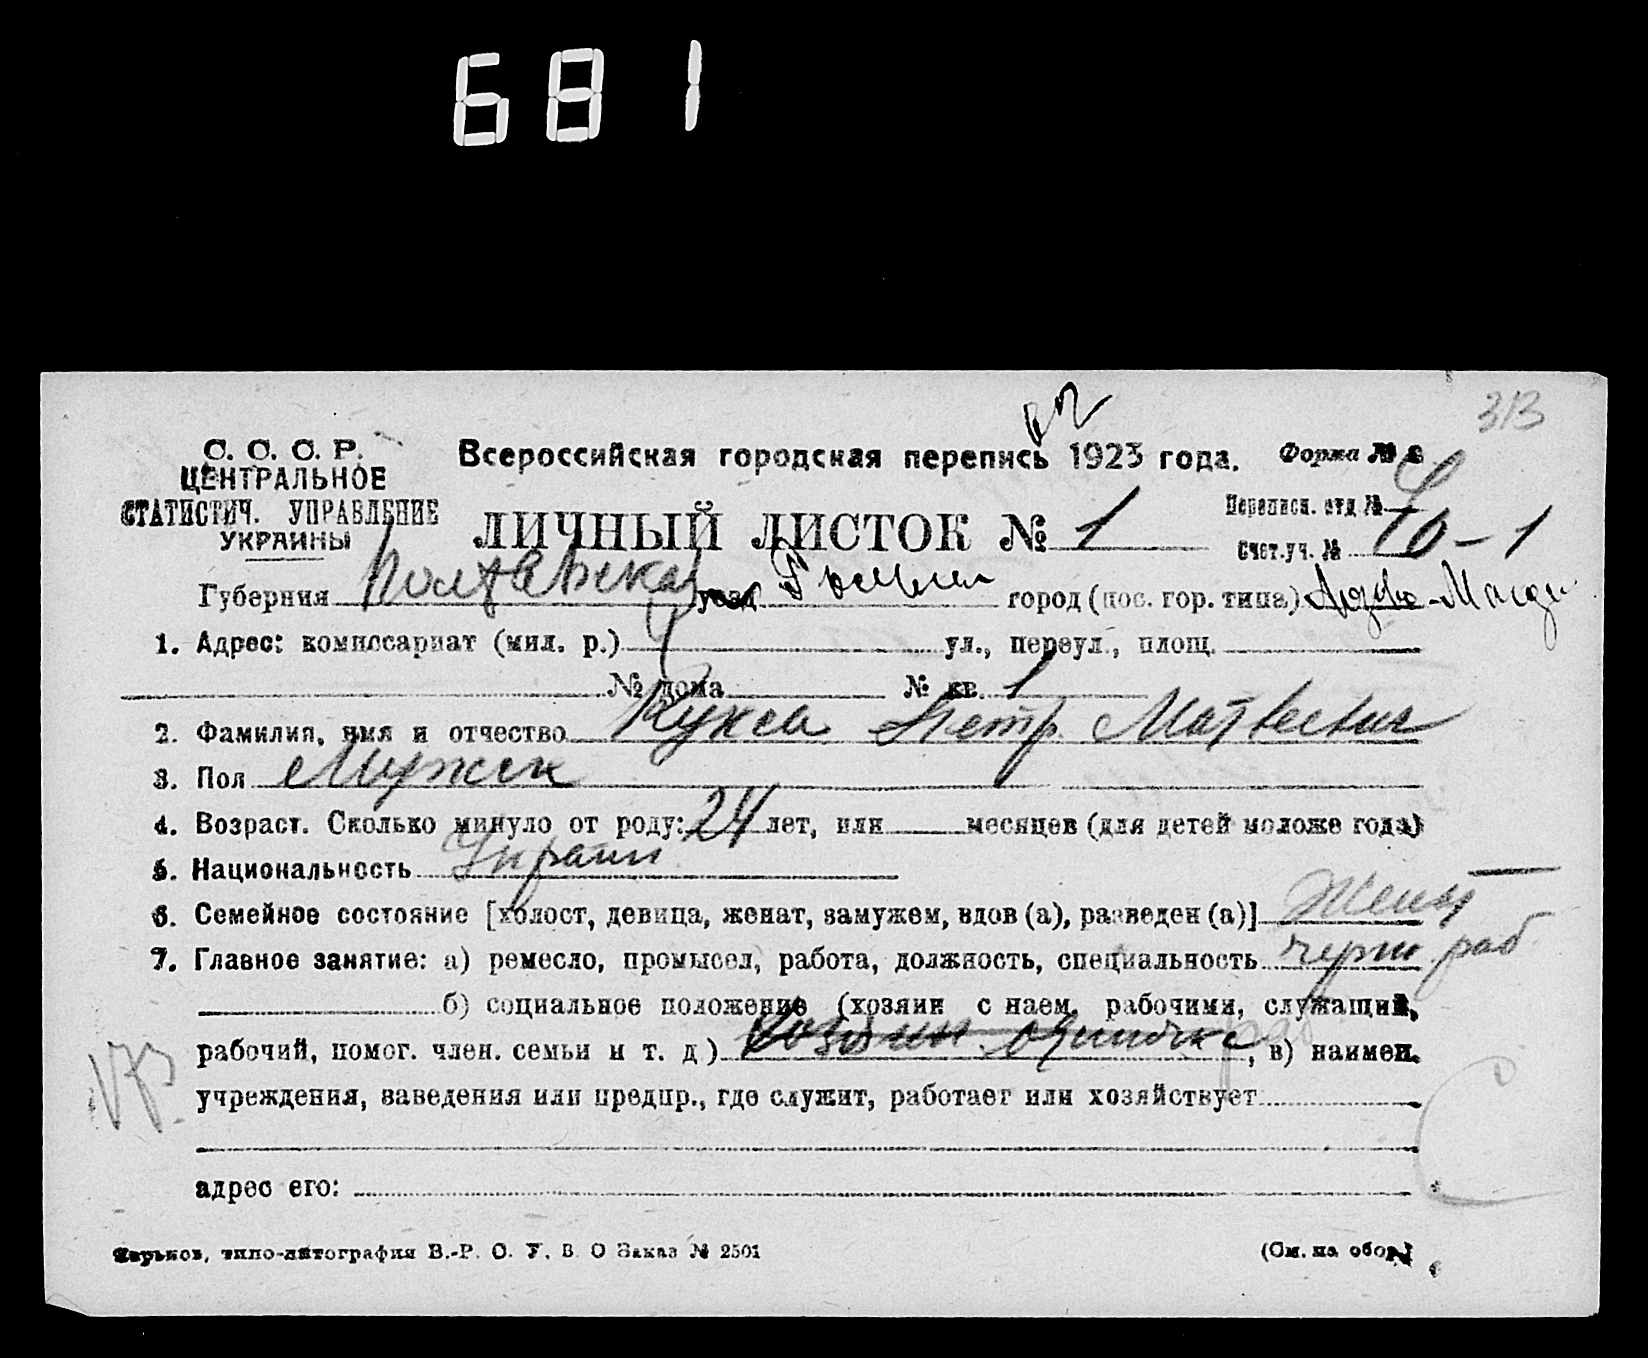 681
313
С. С. С. Р.
ЦЕНТРАЛЬНОЕ
СТАТИСТИЧ. УПРАВЛЕНИЕ
УКРАИНЫ
Всероссийская городская перепись 1923 года.
Форма №
ЛИЧНЫЙ ЛИСТОК № 1
Переписн. отд. №
Счет. уч. № 10-1
Губерния Полтавская уезд город (пос. гор. типа)
1. Адрес: комиссариат (мил. р.) ул., переул., площ.
№ дома № кв. 1
2. Фамилия, имя и отчество Кукса Петр Матвеевич
3. Пол Мужск
4. Возраст. Сколько минуло от роду: 24 лет, или месяцев (для детей моложе года)
5. Национальность Украин
6. Семейное состояние [холост, девица, женат, замужем, вдов (а), разведен (а)] Жен
7. Главное занятие: а) ремесло, промысел, работа, должность, специальность черн раб
б) социальное положение (хозяин с наем. рабочими, служащий,
рабочий, помог. член. семьи и т. д.) Хозяин одиночка, в) наимен.
учреждения, заведения или предпр., где служит, работает или хозяйствует
адрес его:
Харьков, типо-литография В.-Р. О. У. В. О Заказ № 2501
(См. на обор.)